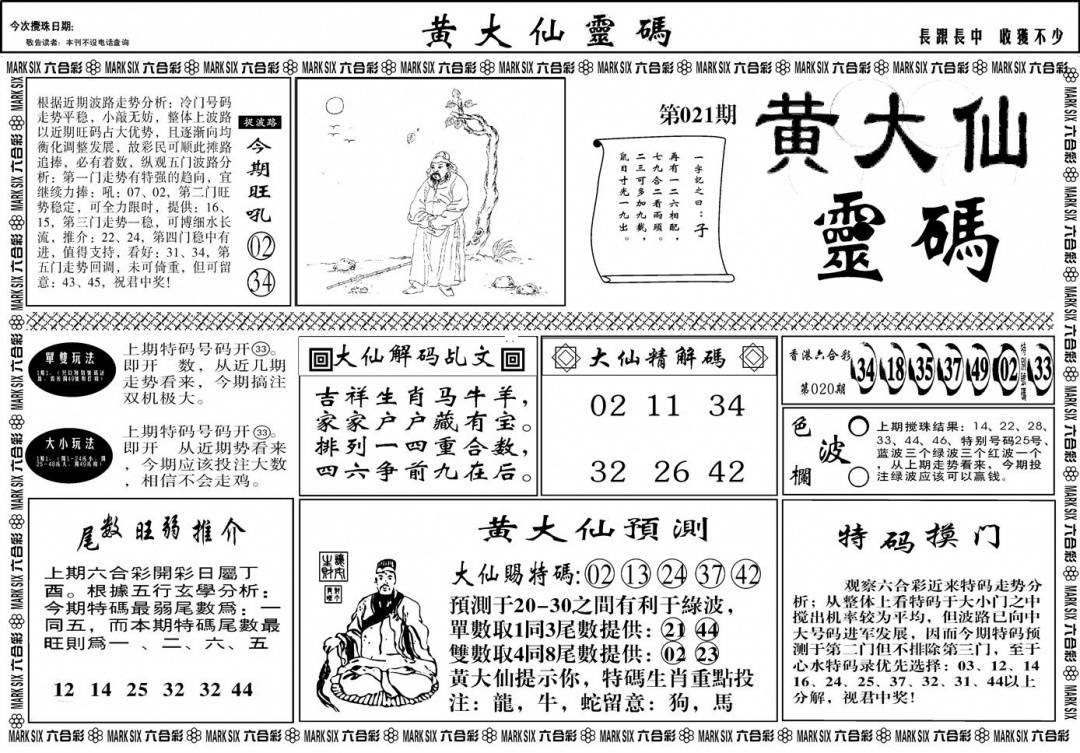 今次攪珠日期:
敬告读者：本刊不设电话查询
黄大仙靈碼
長跟長中 收獲不少
MARK SIX 六合彩 MARK SIX 六合彩 MARK SIX 六合彩 MARK SIX 六合彩 MARK SIX 六合彩 MARK SIX 六合彩 MARK SIX 六合彩 MARK SIX 六合彩 MARK SIX 六合彩 MARK SIX 六合彩 MARK SIX 六合彩
根据近期波路走势分析：冷门号码
走势平稳，小敲无妨，整体上波路
以近期旺码占大优势，且逐渐向均
衡化调整发展，故彩民可顺此摊路
追捧，必有着数，纵观五门波路分
析：第一门走势有特强的趋向，宜
继续力捧：吼：07、02，第二门旺
势稳定，可全力限时，提供：16、
15，第三门走势一稳，可博细水长
流，推介：22、24，第四门稳中有
进，值得支持，看好：31、34，第
五门走势回调，未可倚重，但可留
意：43、45，祝君中奖!
捉波路
今期旺吼
02
34
第021期
一字記之曰：子
再有一二六相配，
七九合二看两頭。
二三可多加九截，
鼠目寸光一九出。
黄大仙
靈碼
單雙玩法
上期特码号码开㉝。
即开　数，从近几期
走势看来，今期搞注
双机极大。
大小玩法
上期特码号码开㉝。
即开　从近期势看来
，今期应该投注大数
，相信不会走鸡。
大仙解码乩文
吉祥生肖马牛羊，
家家户户藏有宝。
排列一四重合数，
四六争前九在后。
大仙精解碼
02 11 34
32 26 42
香港六合彩
第020期
34 18 35 37 49 02 特别號碼 33
色波欄
上期搅珠结果：14、22、28、
33、44、46、特别号码25号、
蓝波三个绿波三个红波一个
，从上期走势看来，今期投
注绿波应该可以赢钱。
尾数旺弱推介
上期六合彩開彩日屬丁
酉。根據五行玄學分析：
今期特碼最弱尾數爲：一
同五，而本期特碼尾數最
旺則爲一 、二、六、五
12 14 25 32 32 44
黄大仙預測
大仙賜特碼:02 13 24 37 42
預測于20-30之間有利于綠波，
單數取1同3尾數提供：21 44
雙數取4同8尾數提供：02 23
黄大仙提示你，特碼生肖重點投
注：龍，牛，蛇留意：狗，馬
特码摸门
观察六合彩近来特码走势分
析；从整体上看特码于大小门之中
搅出机率较为平均，但波路已向中
大号码进军发展，因而今期特码预
测于第二门但不排除第三门，至于
心水特码录优先选择：03、12、14
16、24、25、37、32、31、44以上
分解，祝君中奖!
MARK SIX 六合彩 MARK SIX 六合彩 MARK SIX 六合彩 MARK SIX 六合彩 MARK SIX 六合彩 MARK SIX 六合彩 MARK SIX 六合彩 MARK SIX 六合彩 MARK SIX 六合彩 MARK SIX 六合彩 MARK SIX 六合彩